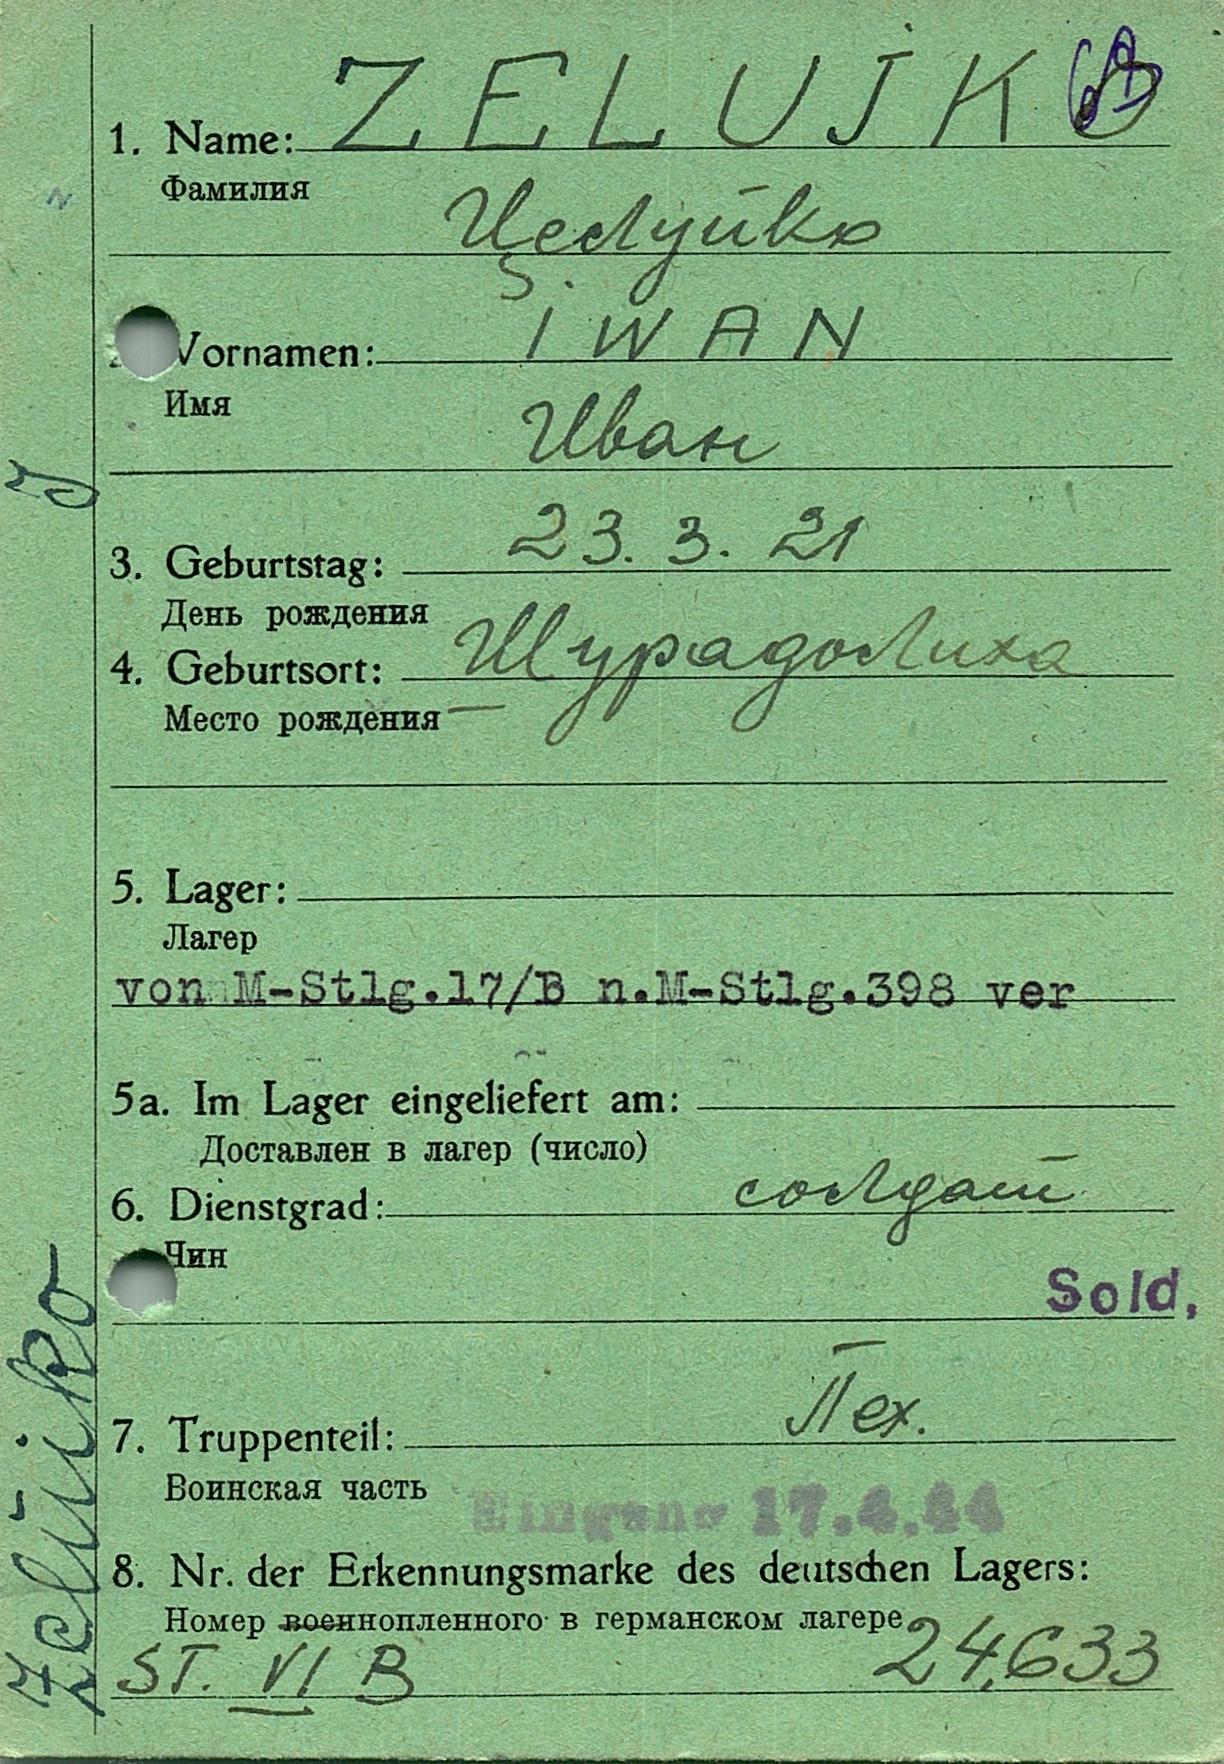 1. Name: ZELUJKO
Фамилия
Целуйко
Vornamen: IWAN
Имя
Иван
3. Geburtstag: 23. 3. 21
День рождения
4. Geburtsort: Шурадолиха
Место рождения
5. Lager:
Лагер
von M-Stlg.17/B n.M-Stlg.398 ver
5a. Im Lager eingeliefert am:
Доставлен в лагер (число)
6. Dienstgrad: солдат
Чин
Sold.
7. Truppenteil: Пех.
Воинская часть
Eingang 17.4.44
8. Nr. der Erkennungsmarke des deutschen Lagers:
Номер военнопленного в германском лагере
ST. VI B 24.633
Zelüiko J